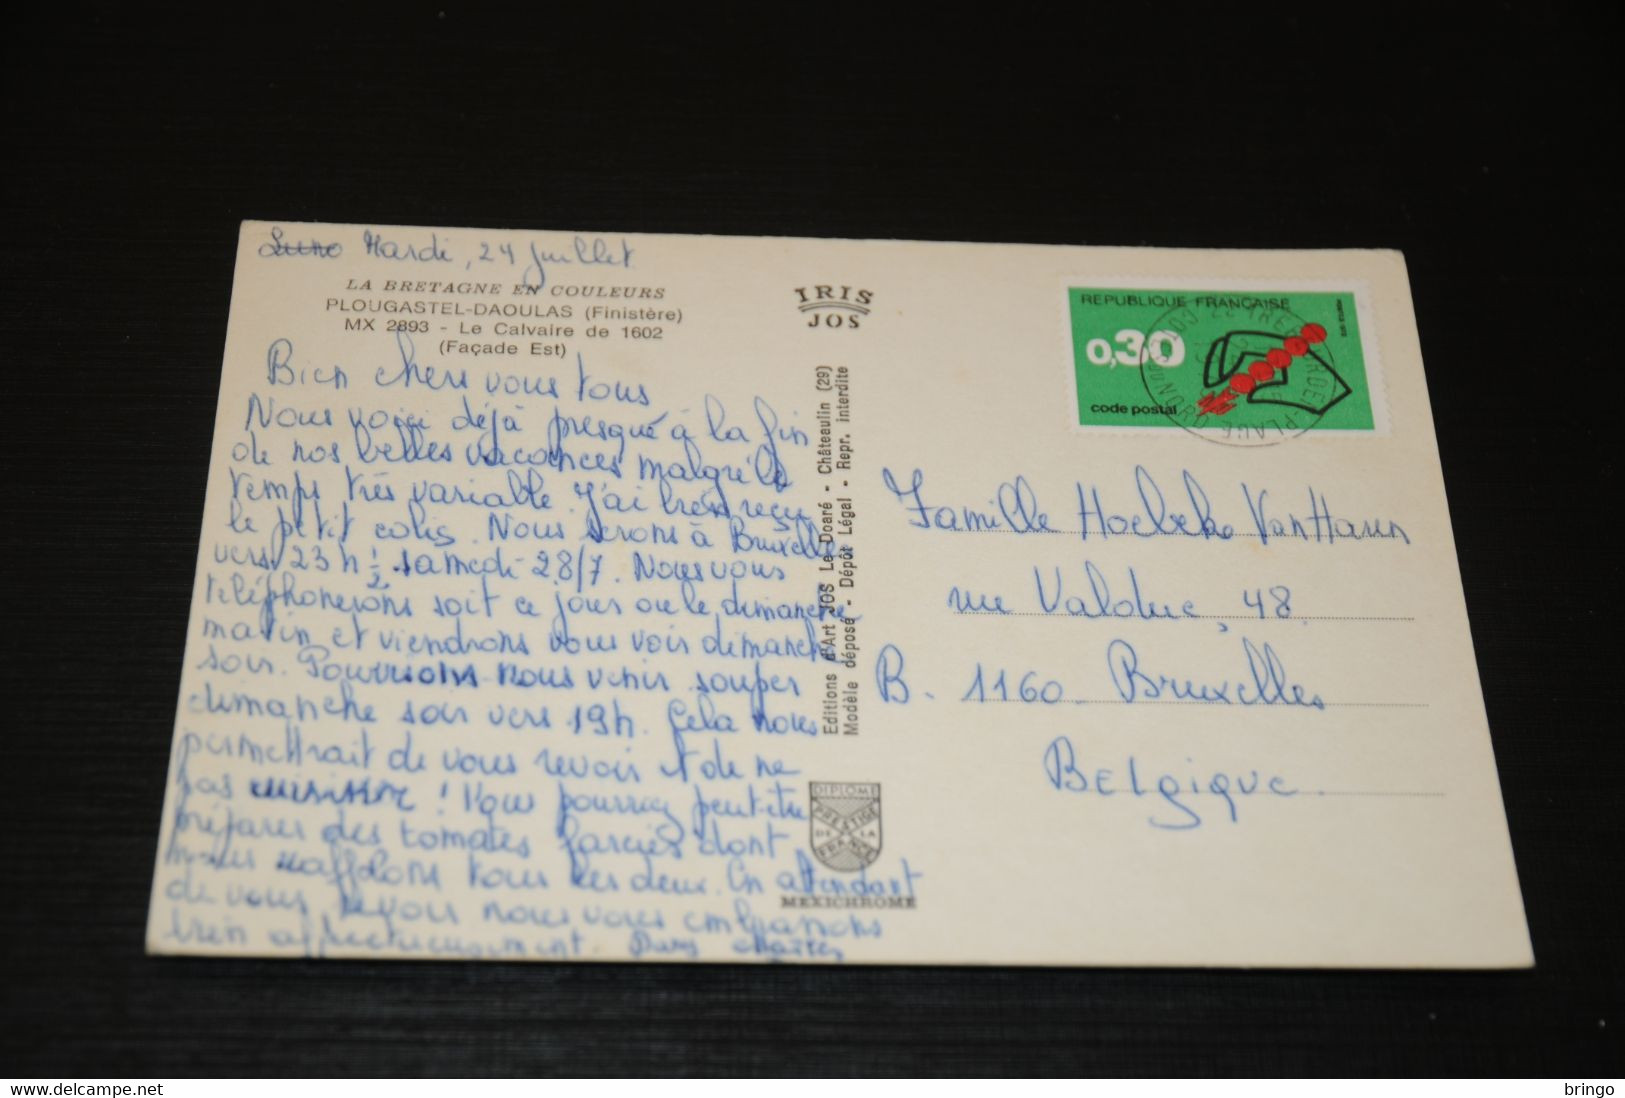 Mardi, 24 Juillet
LA BRETAGNE EN COULEURS
PLOUGASTEL-DAOULAS (Finistère)
MX 2893 - Le Calvaire de 1602
(Façade Est)
Bien chers vous tous
Nous voici déjà presque à la fin
de nos belles vacances malgré le
temps très variable. J'ai bien reçu
le petit colis. Nous serons à Bruxelles
vers 23 h ½ samedi 28/7. Nous vous
téléphonerons soit ce jour ou le dimanche
matin et viendrons vous voir dimanche
soir. Pourrions nous venir souper
dimanche soir vers 19h. Cela nous
permettrait de vous revoir et de ne
pas cuisiner ! Vous pourriez peut-être
préparer des tomates farcies dont
nous raffolons tous les deux. En attendant
de vous revoir nous vous embrassons
bien affectueusement.
IRIS
JOS
Editions d'Art JOS Le Doaré - Châteaulin (29)
Modèle déposé - Dépôt Légal - Repr. interdite
DIPLOME
PRESTIGE
DE LA
FRANCE
MEXICHROME
REPUBLIQUE FRANÇAISE
0,30
code postal
Famille Hoebeke Van Haren
rue Valduc, 48
B. 1160 - Bruxelles
Belgique.
bringo